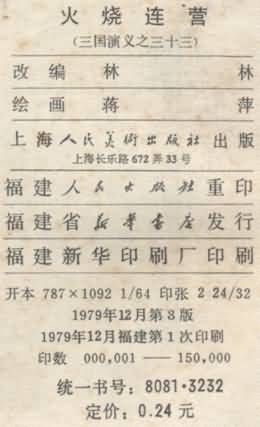 火烧连营
(三国演义之三十三)
改编 林 林
绘画 蒋 萍
上海人民美术出版社出版
上海长乐路672弄33号
福建人民出版社重印
福建省新华书店发行
福建新华印刷厂印刷
开本 787×1092 1/64 印张 2 24/32
1979年12月第3版
1979年12月福建第1次印刷
印数 000,001——150,000
统一书号：8081·3232
定价：0.24元